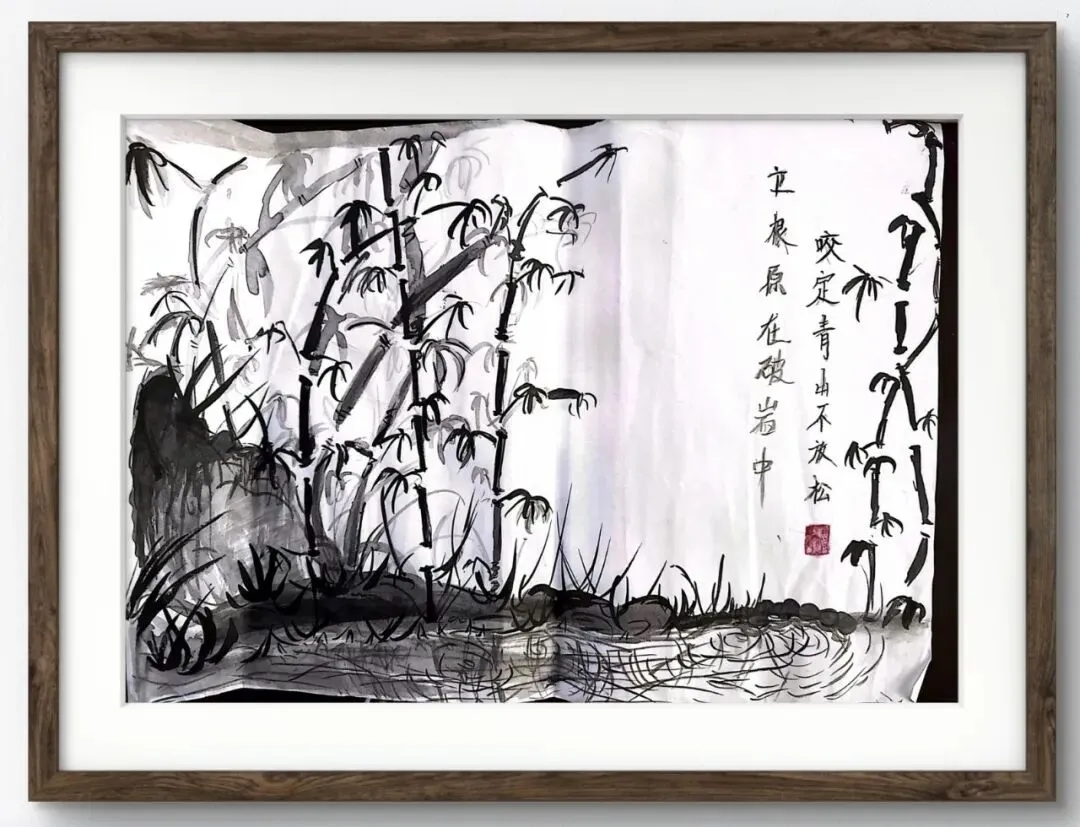 咬定青山不放松
立根原在破岩中